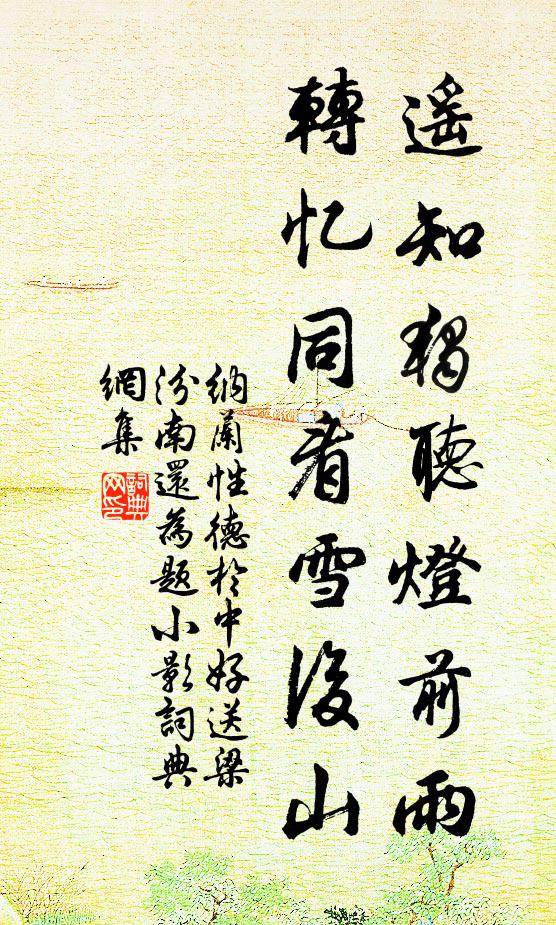 遥知獨聽燈前雨
轉忆同看雪後山
納蘭性德於中好送梁
汾南還為題小影詞典
網集
詞典网印